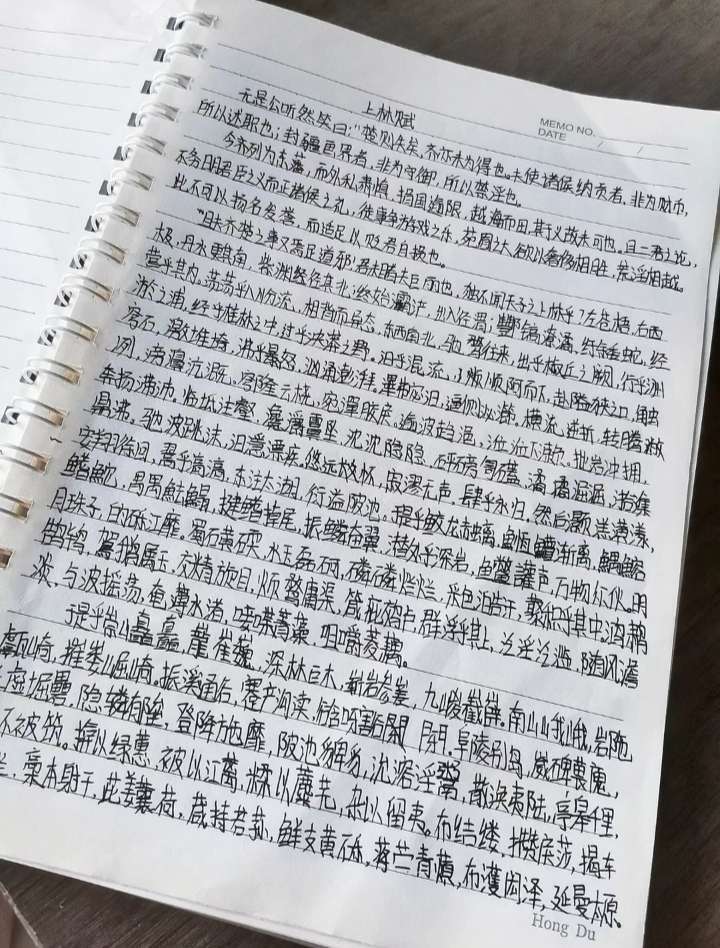 上林赋
MEMO NO.
DATE / /
无是公听然笑曰：“楚则失矣，齐亦未为得也。夫使诸侯纳贡者，非为财币，
所以述职也；封疆画界者，非为守御，所以禁淫也。
今齐列为东藩，而外私肃慎，捐国逾限，越海而田，其于义故未可也，且二君之论，
不务明君臣之义而正诸侯之礼，徒事争游戏之乐，苑囿之大，欲以奢侈相胜，荒淫相越。
此不可以扬名发誉，而适足以贬君自损也。
“且夫齐楚之事又焉足道邪！君未睹夫巨丽也，独不闻天子之上林乎？左苍梧，右西
极，丹水更其南，紫渊径其北；终始灞浐，出入泾渭；酆镐潦潏，纡馀委蛇，经
营乎其内。荡荡乎八川分流，相背而异态，东西南北，驰骛往来，出乎椒丘之阙，行乎洲
淤之浦，经乎桂林之中，过乎泱漭之野。汩乎混流，顺阿而下，赴隘狭之口，触
穹石，激堆埼，沸乎暴怒，汹涌澎湃，滭弗宓汩，逼侧泌瀄。横流逆折，转腾潎
洌，滂濞沆溉。穹隆云桡，宛潬胶戾，逾波趋浥，涖涖下濑。批岩冲拥，
奔扬滞沛。临坻注壑，瀺灂霣坠，沈沈隐隐，砰磅訇礚，潏潏淈淈，湁潗
鼎沸。驰波跳沫，汩漂疾。悠远长怀，寂漻无声，肆乎永归。然后灏溔潢漾，
安翔徐回，翯乎滈滈，东注太湖，衍溢陂池。于是乎蛟龙赤螭，䱭䲛渐离，鰅鳙
鳍鮀，禺禺魼鳎，揵鳍掉尾，振鳞奋翼，潜处乎深岩，鱼鳖讙声，万物众伙。明
月珠子，的皪江靡，蜀石黄碝，水玉磊砢，磷磷烂烂，采色澔汗，藂积乎其中。鸿鹔
鹄鸨，鴐鹅属玉，交精旋目，烦鹜庸渠，箴疵鵁卢，群浮乎其上，泛淫泛滥，随风澹
淡，与波摇荡，奄薄水渚，唼喋菁藻，咀嚼菱藕。
于是乎崇山矗矗，巃嵸崔巍，深林巨木，崭岩参嵳，九嵕巀嶭。南山峨峨，岩陁
甗崎，摧崣崛崎。振溪通谷，蹇产沟渎，谽呀豁閜，阜陵别岛，崴磈嵔廆，
丘虚堀礨，隐辚郁垒，登降施靡，陂池貏豸，沇溶淫鬻，散涣夷陆，亭皋千里，
靡不被筑。揜以绿蕙，被以江蓠，糅以蘪芜，杂以留夷。布结缕，攒戾莎，揭车
衡兰，稾本射干，茈姜蘘荷，葴持若荪，鲜支黄砾，蒋苎青薠，布濩闳泽，延曼太原。
Hong Du